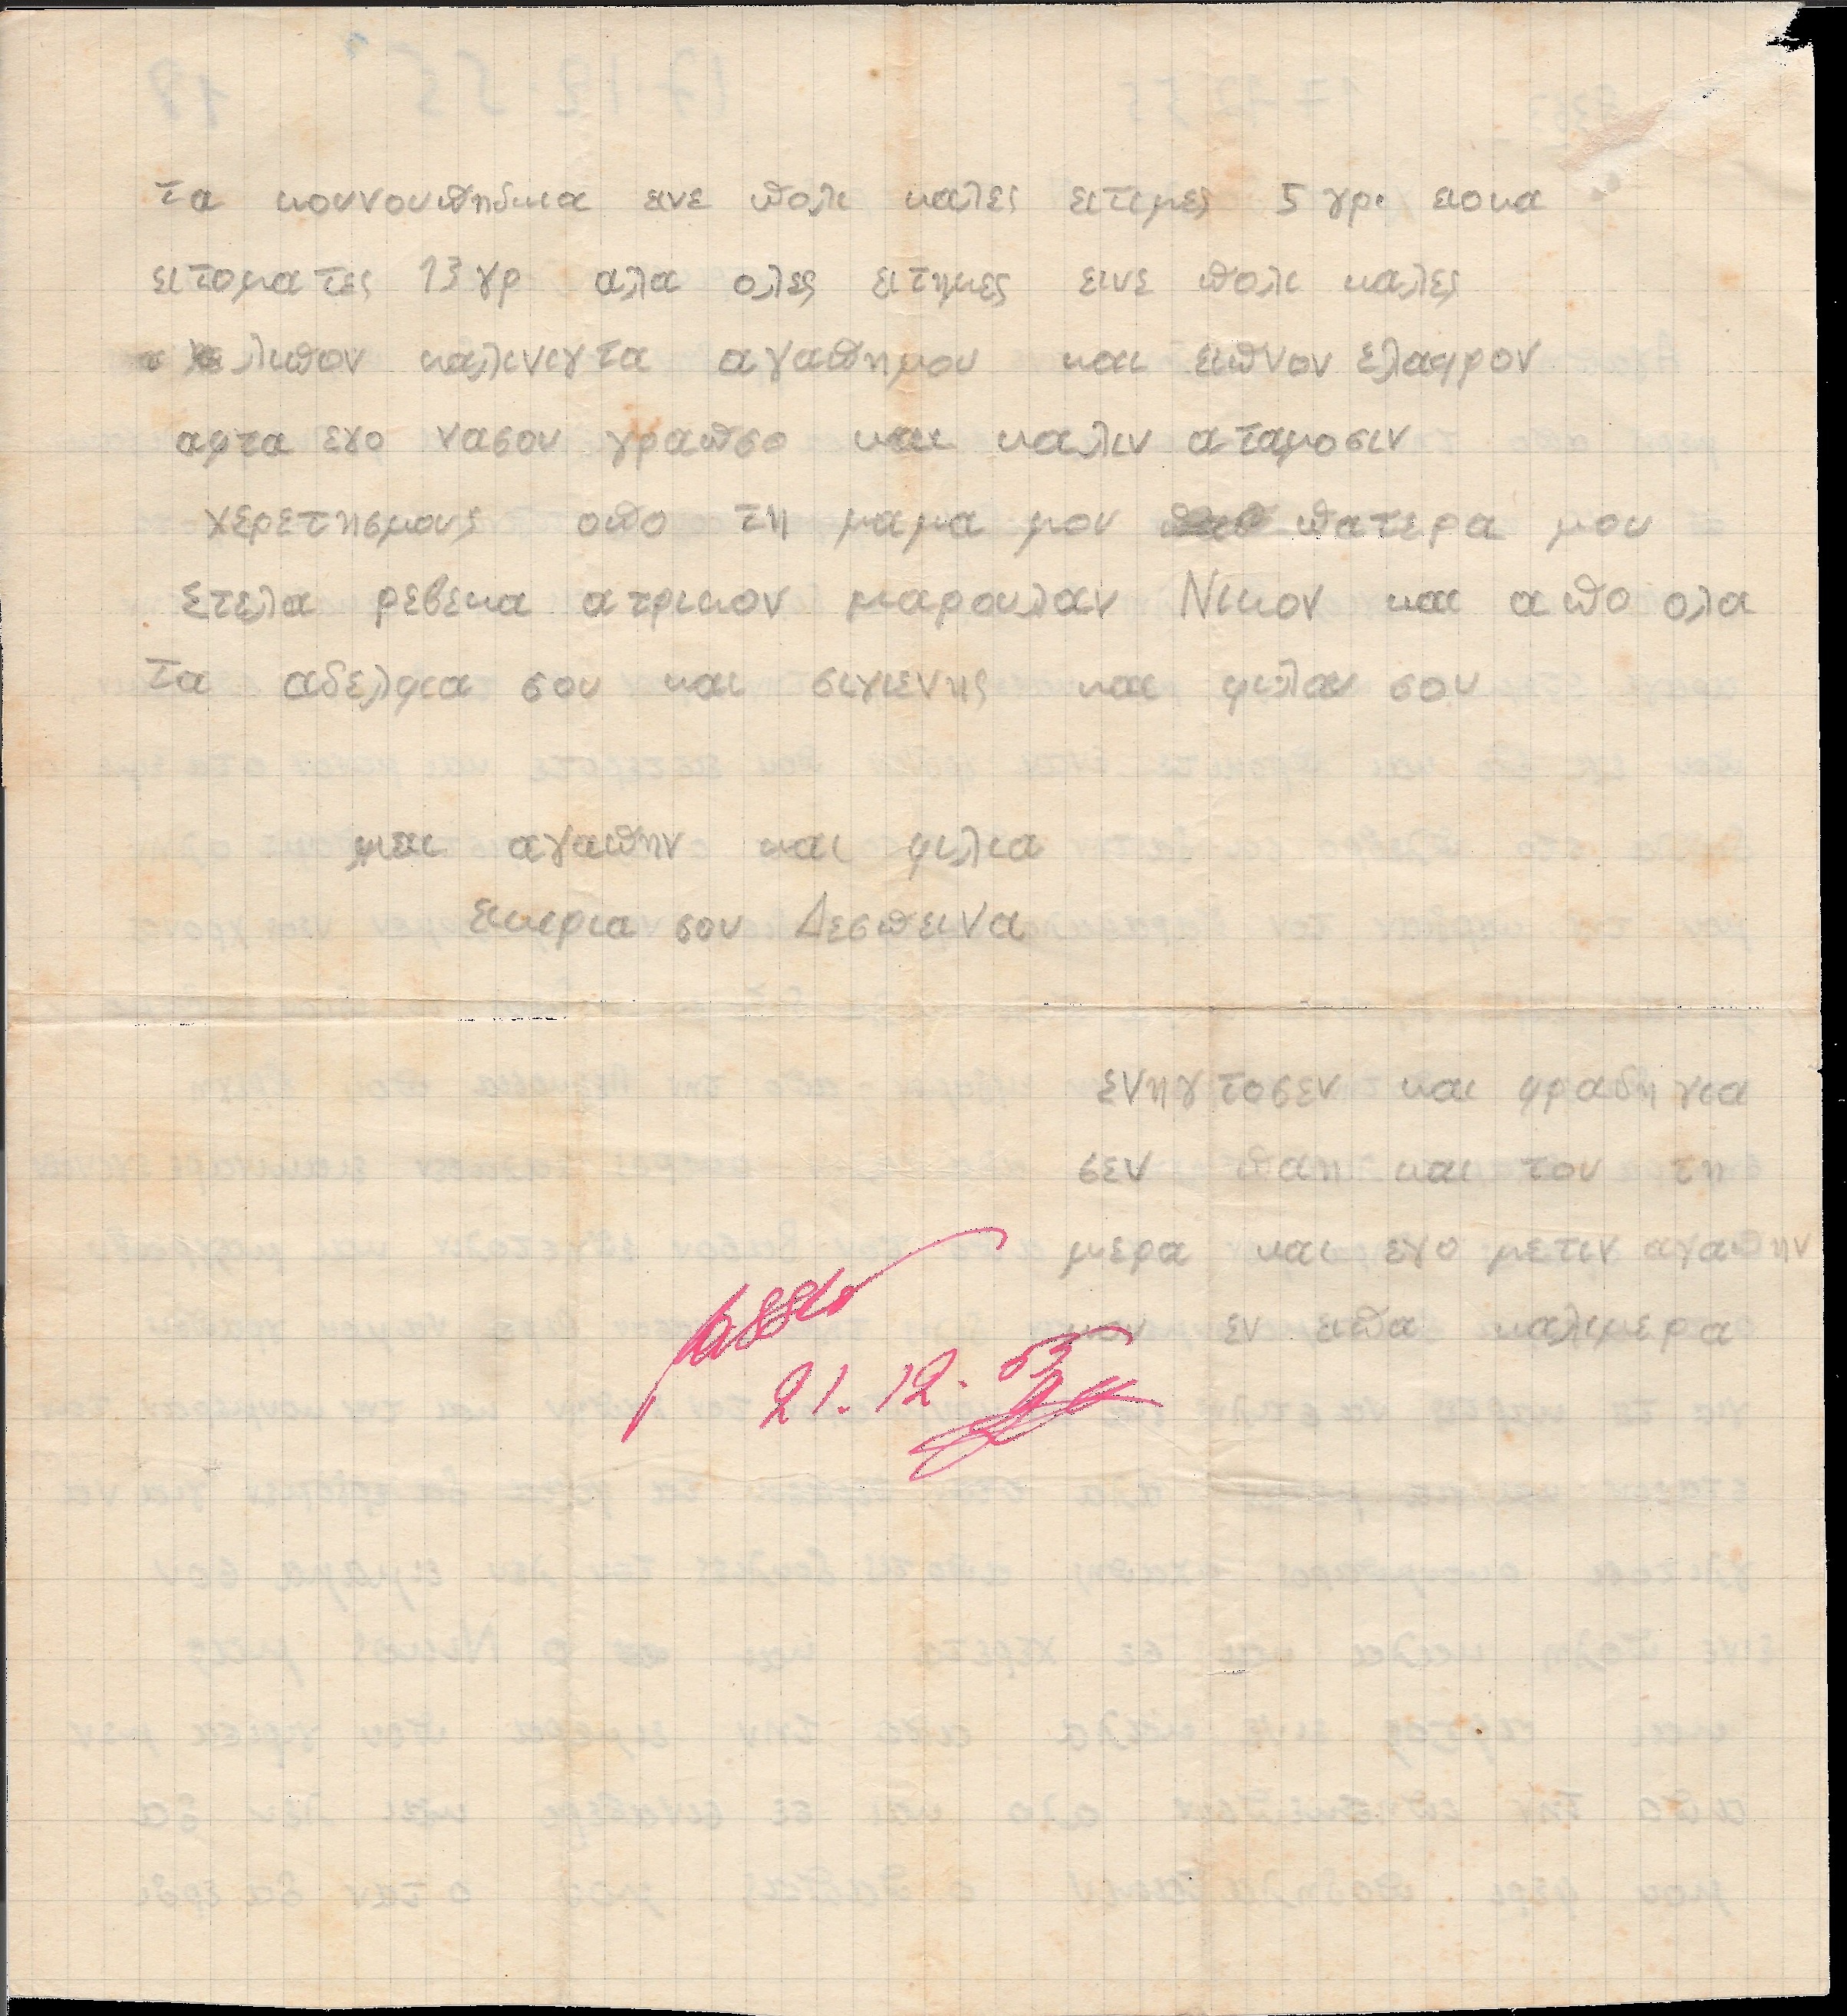 τα κουνουπηδκια εινε πολι καλες ειτιμες 5 γρι ειοκα
ειτοματες 13 γρ αλα ολες ειτημες εινε πολι καλες
λιπον καλινιγτα αγαπημου και ειπνον ελαφρον
αφτα εγο νασου γραπσο και καλιν αταμοσιν
χερετησμους οπο τη μαμα μου πατερα μου
Στελα ρεβεκα ατρικον μαρουλαν Νικον και απο ολα
τα αδελφια σου και σιγιενης και φιλου σου
μαι αγαπην και φιλια
εικιρια σου Δεσπεινα
ενηγτοσεν και φραδη για
σεν παη και του τη
μερα και εγο μετιν αγαπην
μου εν ειπα καλιμερα
Passed
21.12.55